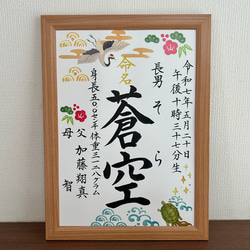 令和七年五月二十日
午後十時三十七分生
長男 そら
命名
蒼空
身長五〇〇センチ 体重三一二八グラム
父 加藤翔真
母 智